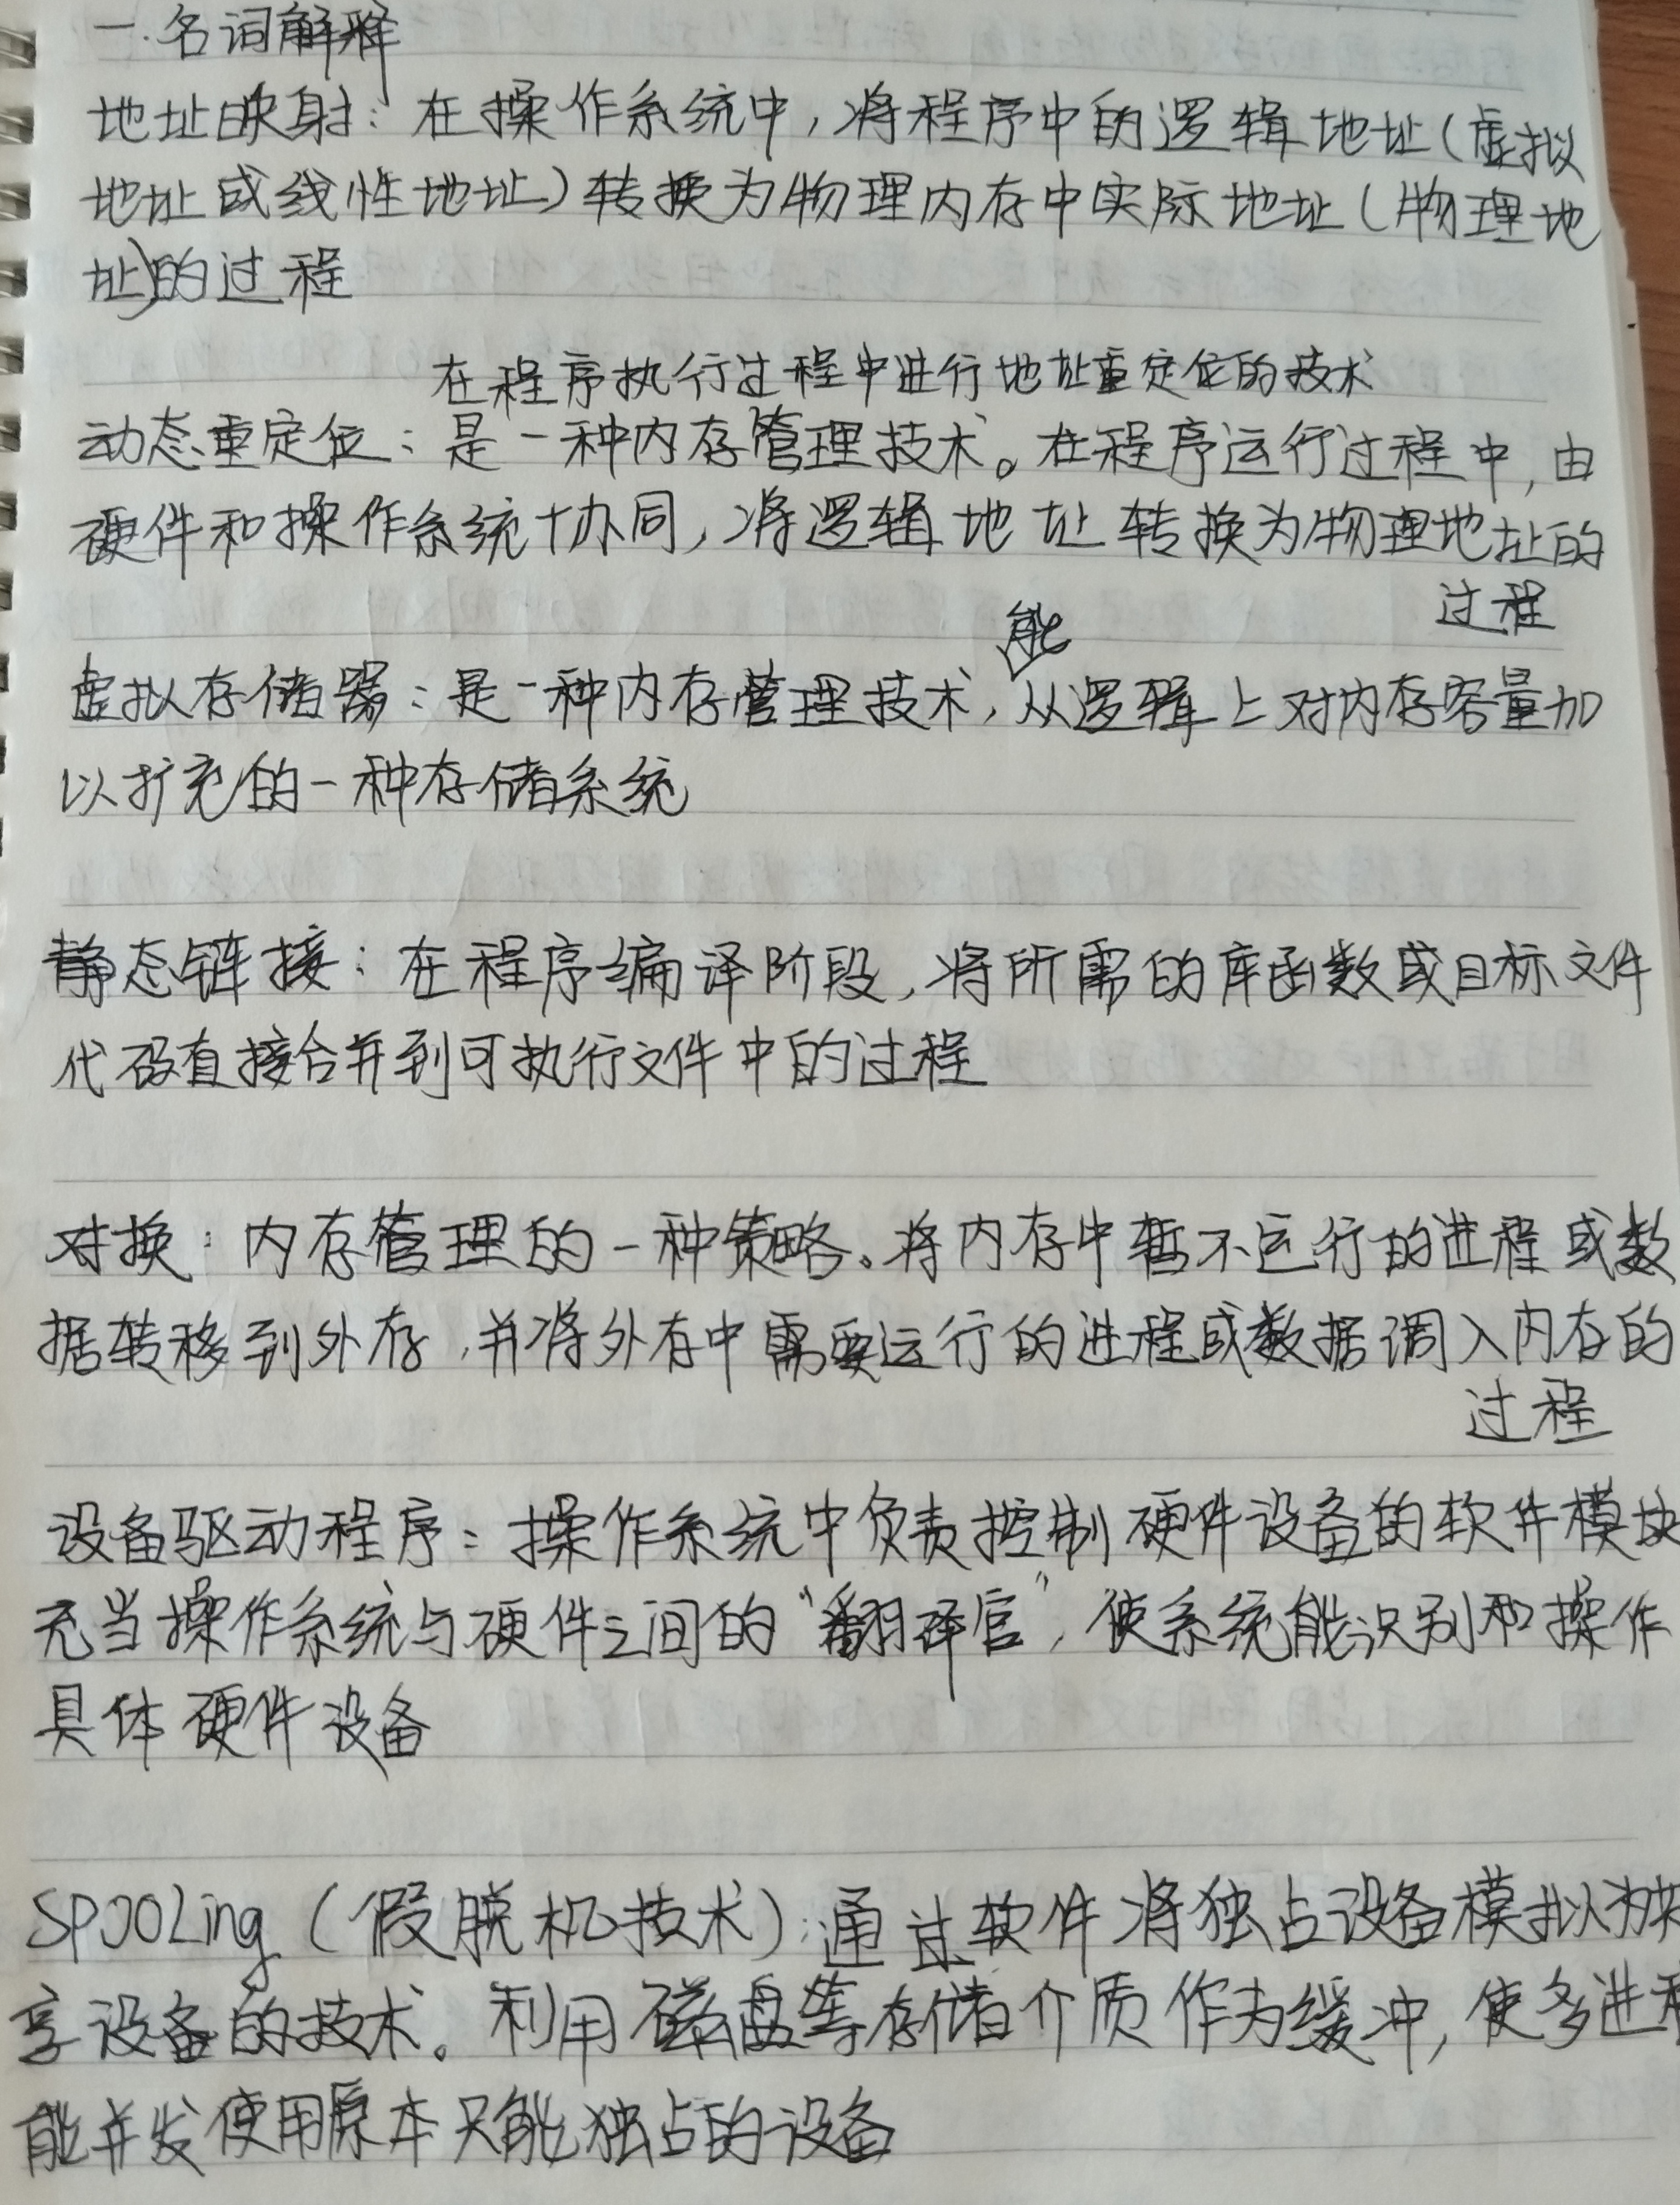 一.名词解释
地址映射：在操作系统中，将程序中的逻辑地址（虚拟
地址或线性地址）转换为物理内存中实际地址（物理地
址）的过程
在程序执行过程中进行地址重定位的技术
动态重定位：是一种内存管理技术。在程序运行过程中，由
硬件和操作系统协同，将逻辑地址转换为物理地址的
过程
能
虚拟存储器：是一种内存管理技术，从逻辑上对内存容量加
以扩充的一种存储系统
静态链接：在程序编译阶段，将所需的库函数或目标文件
代码直接合并到可执行文件中的过程
对换：内存管理的一种策略。将内存中暂不运行的进程或数
据转移到外存，并将外存中需要运行的进程或数据调入内存的
过程
设备驱动程序：操作系统中负责控制硬件设备的软件模块
充当操作系统与硬件之间的“翻译官”，使系统能识别和操作
具体硬件设备
SPOOLing（假脱机技术）：通过软件将独占设备模拟为共
享设备的技术。利用磁盘等存储介质作为缓冲，使多进程
能并发使用原本只能独占的设备